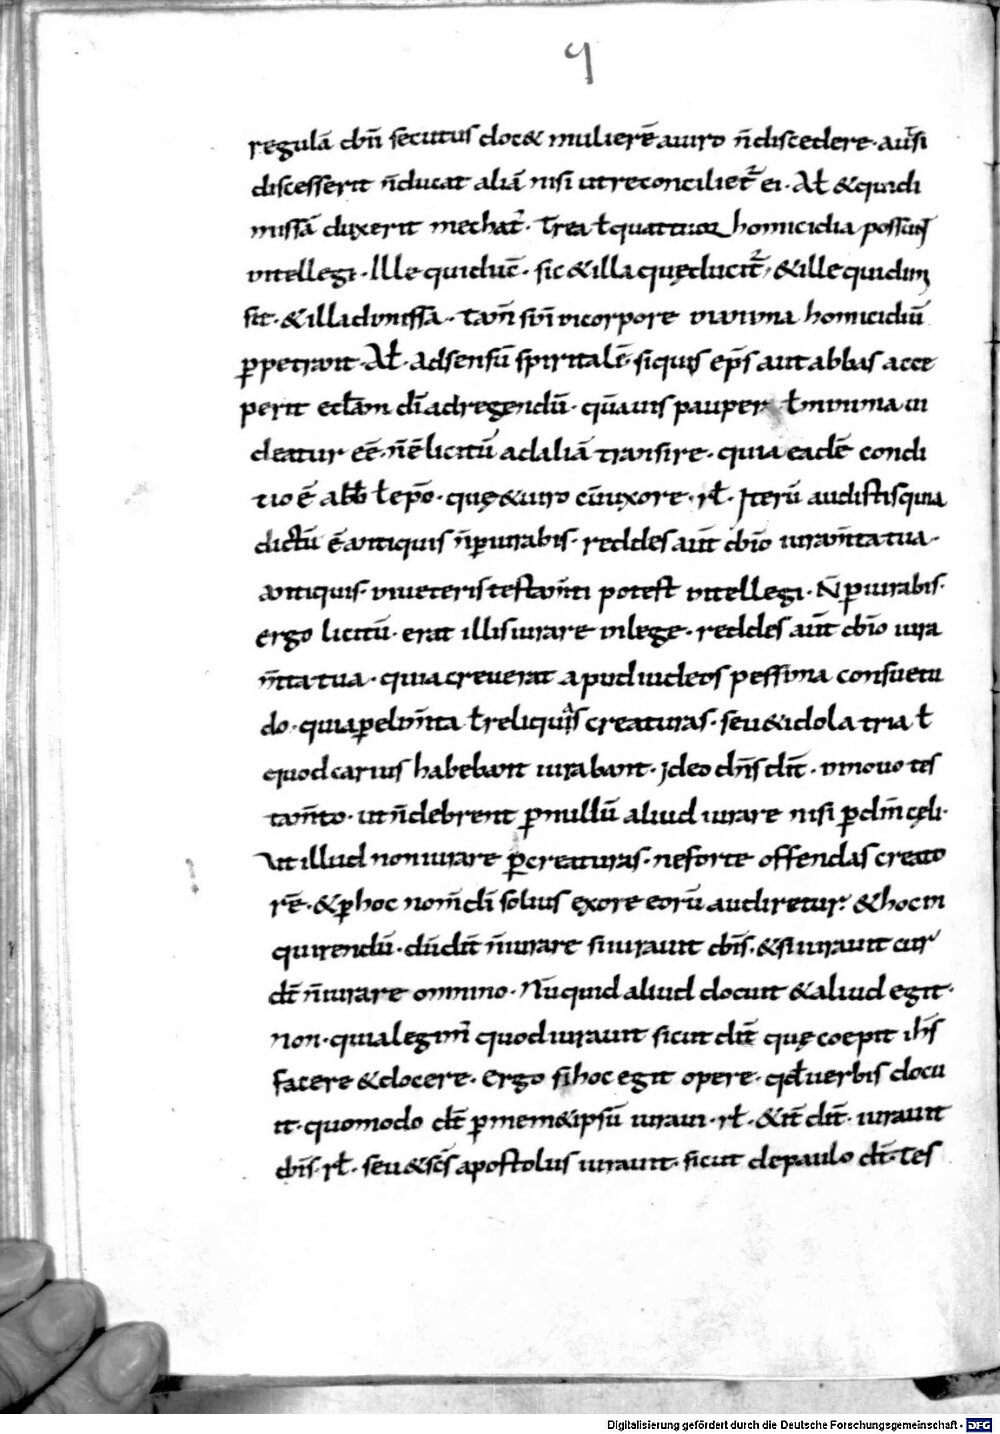 9
regulā dn̄i secutus doc& mulierē auiro n̄discedere· aut̄si
discesserit n̄ducat aliā nisi utreconciliet̄ ei· Al̄ &quidi
missā duxerit mechat̄· Trea ł quattuor homicidia possunt
intellegi· Ille quiducē· sic&illa quęducit̄, &ille quidimi
sit· &illadimissā· tam̄ sun̄ incorpore uiuuna homicidiū
p̄petrant· Al̄· adsensū spiritalē· siquis ep̄s aut abbas acce
perit eccl̄am dī adregendū· quāuis pauper ł minima ui
deatur eē· n̄ ē licitū adaliā transire· quia eadē condi
tio ē abb̄ ł ep̄o· quę&uiro cū uxore· rl̄· Iterū audistisquia
dictū ē antiquis n̄ p̄iurabis· reddes aūt dn̄o iuram̄ta tua·
antiquis· inueteris testam̄ti potest intellegi· N̄ p̄iurabis·
ergo licitū· erat illis iurare inlege· reddes aūt dn̄o iura
m̄ta tua· quia creuerat apud iudeos pessima consuetu
do· quia p̄ elem̄ta ł reliquas creaturas· seu &idolatria ł
quod carius habebant iurabant· Ideo dn̄s dix̄· innouo tes
tam̄to· ut n̄ debrent p̄ nullū aliud iurare nisi p̄ dm̄ cęli·
Ut illud non iurare p̄ creaturas· neforte offendas creato
rē· &p̄ hoc nom̄ dī solius exore eorū audiretur· &hoc in
quirendū· dū dix̄ n̄ iurare si iurauit dn̄s· &si iurauit cur
dix̄ n̄ iurare omnino· Nūquid aliud docuit &aliud egit·
non· quia legim̄ quod iurauit sicut dix̄ quę coepit ih̄s
facere &docere· ergo si hoc egit opere· qd̄ uerbis docu
it· quomodo dix̄ p̄ mem&ipsū iuraui· rl̄· &it̄ dix̄· iurauit
dn̄s· rl̄· seu &sc̄s apostolus iurauit· sicut depaulo dix̄· Tes
Digitalisierung gefördert durch die Deutsche Forschungsgemeinschaft - DFG